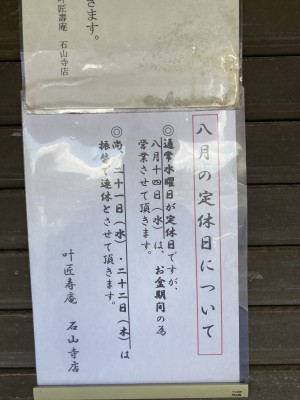 きます。
叶匠壽庵 石山寺店
八月の定休日について
◎通常水曜日が定休日ですが、
八月十四日(水)は、お盆期間の為
営業させて頂きます。
◎尚、二十一日(水)・二十二日(木)は
振替で連休とさせて頂きます。
叶匠寿庵 石山寺店